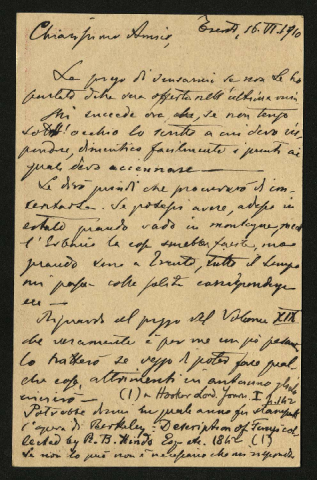 Chiarissimo Amico, Trento, 16. VI. 1910
La prego di scusarmi se non Le ho
parlato di sua offerta nell'ultima mia
Mi succede ora che, se non tengo
sott'occhio lo scritto a cui devo ris-
pondere, dimentico facilmente i punti ai
quali devo accennare —
Le dirò quindi che procurerò di con-
tentarla. Se potessi avere, adesso in
estate quando vado in montagna,
l'Erbario la cosa sarebbe facile, ma
quando sono a Trento, tutto il tempo
mi passa colla solita corrispondenza
ecc —
Riguardo al prezzo del Volume XIX
che veramente è per me un po'
lo tratterò se veggo di poter fare qual
che cosa, altrimenti in autunno glielo
invierò — (1) in Hooker Lond. Journ. I p. 162
Potrebbe dirmi in quale anno fu stampata
l'opera di Berkeley: Description of Fungi col-
lected by R. B. Hinds Esq. etc. 1842 (1)
Se non lo può non è necessario che mi risponda